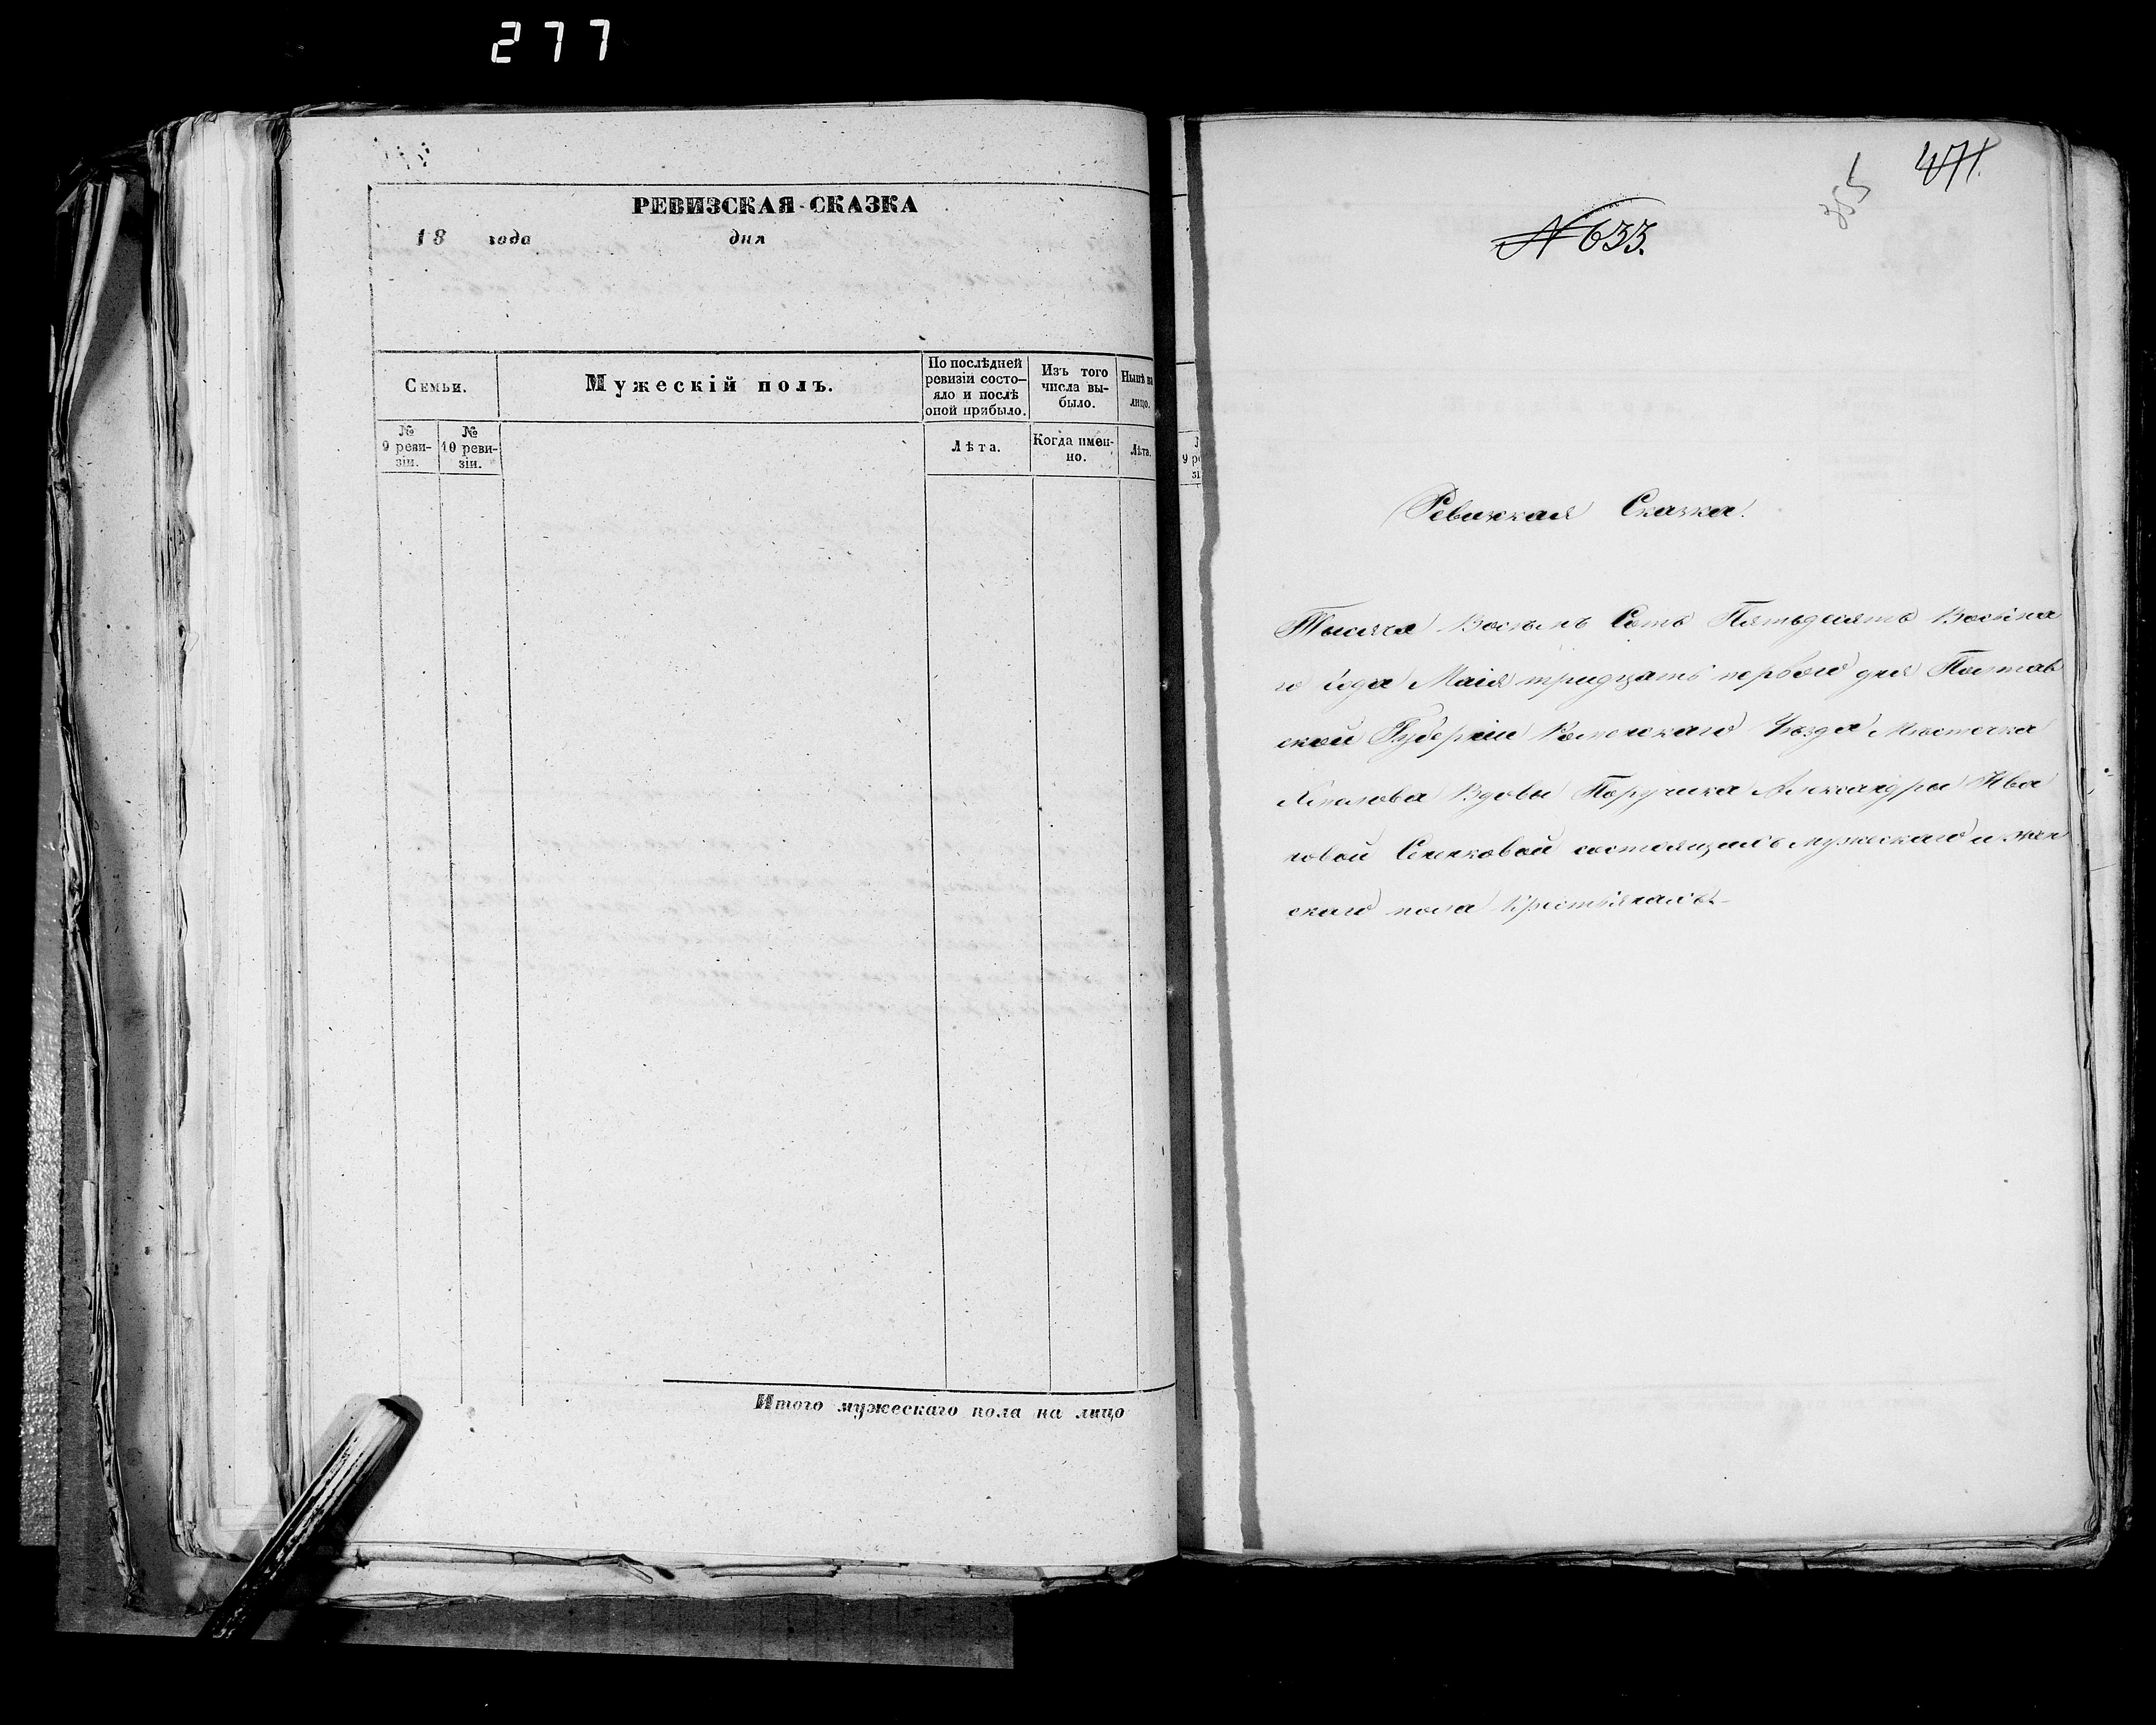 277
РЕВИЗСКАЯ СКАЗКА
18 года дня
Семьи.
Мужескій полъ.
По послѣдней
ревизіи состо-
яло и послѣ
оной прибыло.
Изъ того
числа вы-
было.
Нынѣ на
лицо.
№
9 реви-
зіи.
№
10 реви-
зіи.
Лѣта.
Когда имен-
но.
Лѣта.
Итого мужескаго пола на лицо
471.
355
№ 633.
Ревизская Сказка.
Тысяча Восемь Сотъ Пятьдесятъ Восьма
го года Маія тридцать первого дня Полтав
ской Губерніи Роменскаго Уѣзда Мѣстечка
Вдовы Поручика Александры Ива
новой состоящимъ мужескаго и жен
скаго пола Крестьянамъ